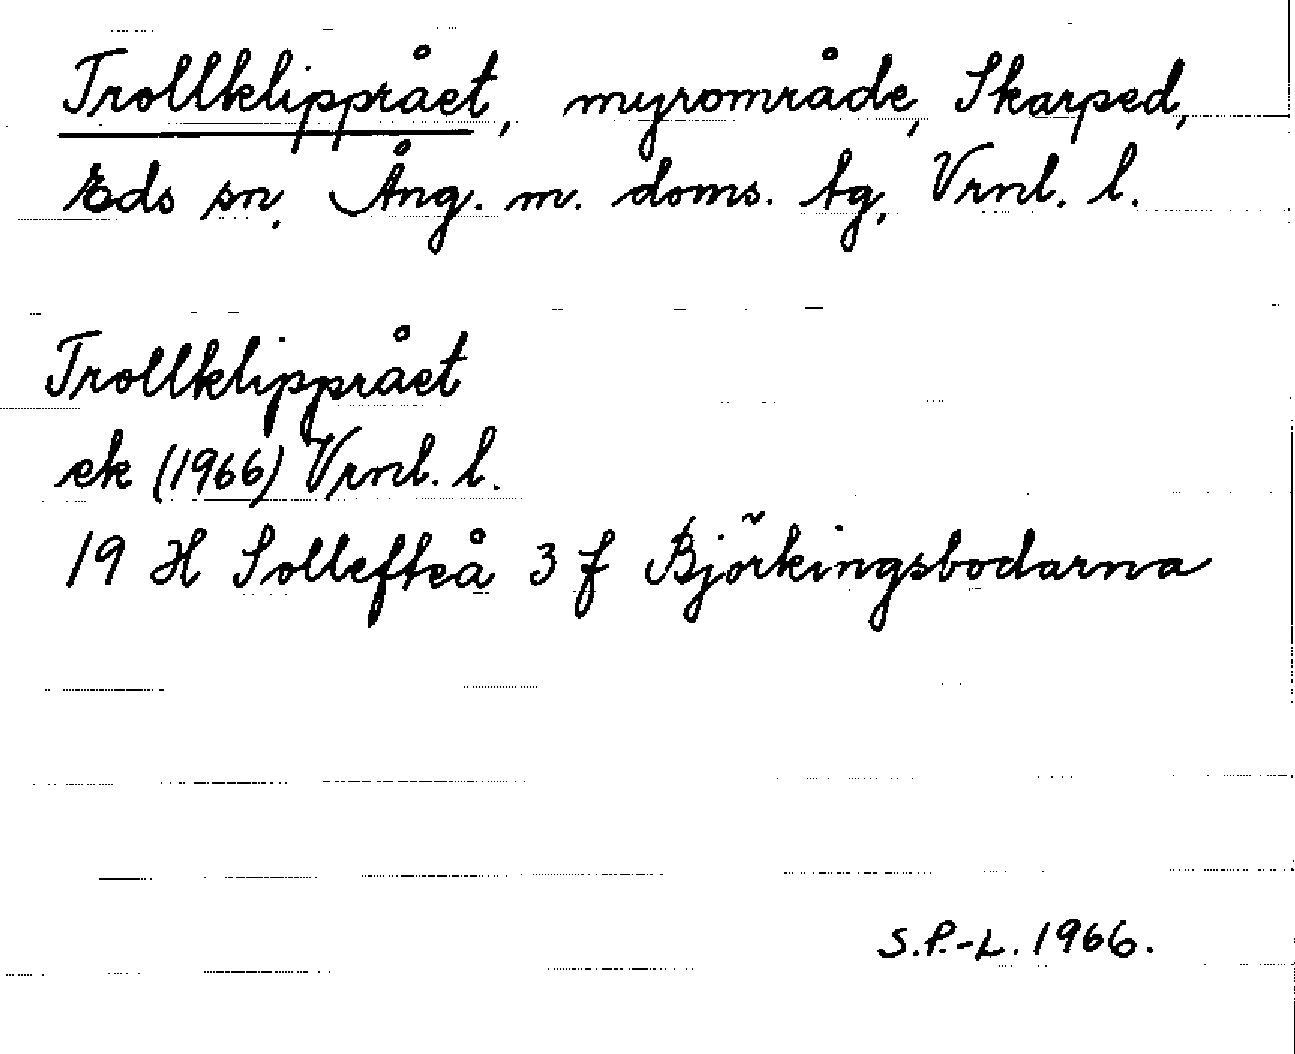 Trollklipprået, myrområde, Skarped,
Eds sn, Ång. m. doms. tg, Vrnl. l.
Trollklipprået
ek (1966) Vrnl. l.
19 H Sollefteå 3 f Björkingsbodarna
S.P.-L. 1966.